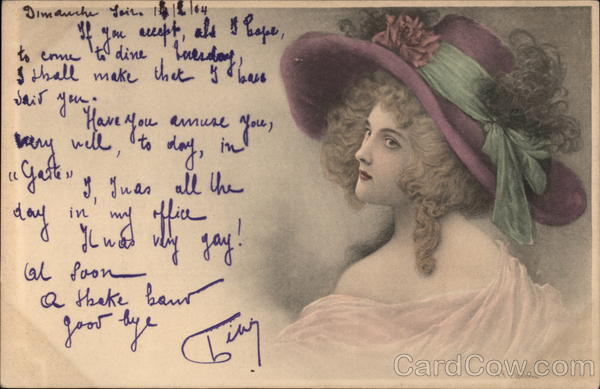 Dimanche Soir. 12/04
If you accept, als I hope,
to come to dine tuesday,
I shall make that I have
said you.
Have you amuse you,
very well, to day, in
"Gaste"
I, I was all the
day in my office
It was very gay!
At Soon
A shake hand
good bye
CardCow.com